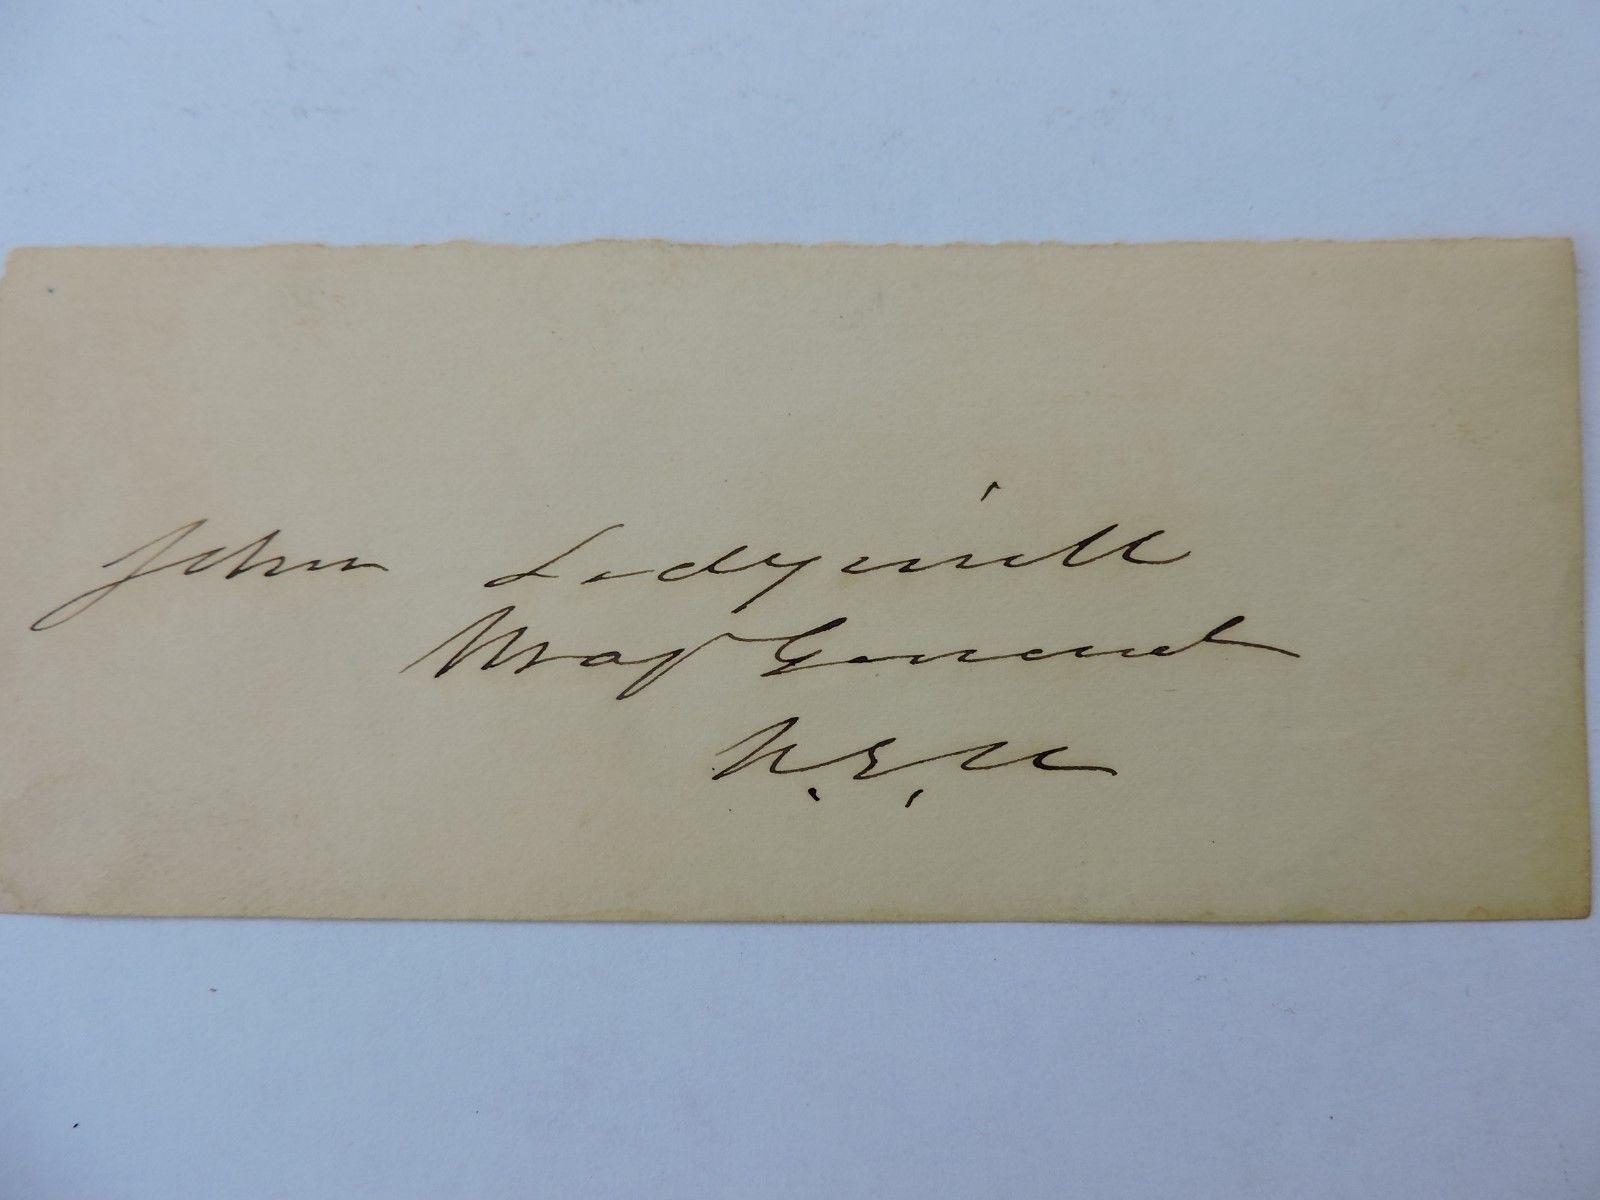 John Sedgwick
Maj General
U.S.V